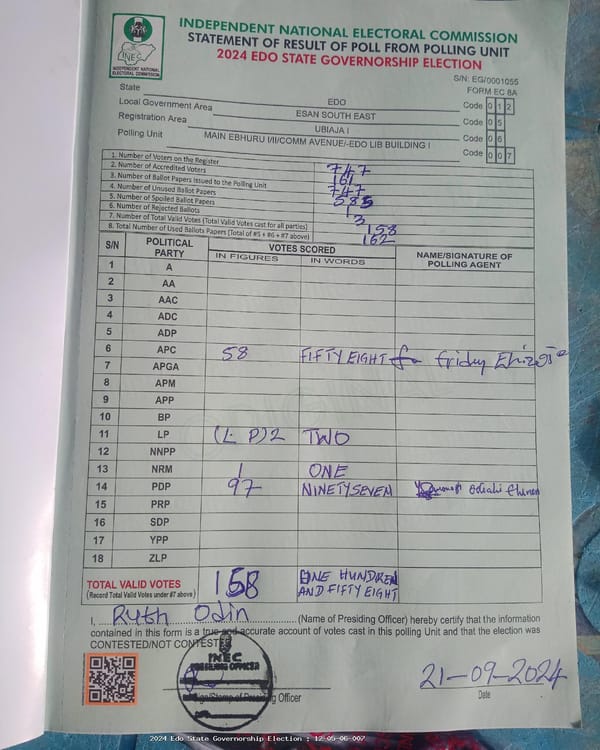 INDEPENDENT NATIONAL ELECTORAL COMMISSION
STATEMENT OF RESULT OF POLL FROM POLLING UNIT
2024 EDO STATE GOVERNORSHIP ELECTION
INEC
INDEPENDENT NATIONAL ELECTORAL COMMISSION
S/N: EG/0001055
FORM EC 8A
State EDO Code 0 1 2
Local Government Area ESAN SOUTH EAST Code 0 5
Registration Area UBIAJA I Code 0 6
Polling Unit MAIN EBHURU I/II/COMM AVENUE/-EDO LIB BUILDING I Code 0 0 7
1. Number of Voters on the Register 747
2. Number of Accredited Voters 161
3. Number of Ballot Papers Issued to the Polling Unit 747
4. Number of Unused Ballot Papers 585
5. Number of Spoiled Ballot Papers 1
6. Number of Rejected Ballots 3
7. Number of Total Valid Votes (Total Valid Votes cast for all parties) 158
8. Total Number of Used Ballots Papers (Total of #5 + #6 + #7 above) 162
S/N POLITICAL PARTY VOTES SCORED NAME/SIGNATURE OF POLLING AGENT
IN FIGURES IN WORDS
1 A
2 AA
3 AAC
4 ADC
5 ADP
6 APC 58 FIFTY EIGHT Friday
7 APGA
8 APM
9 APP
10 BP
11 LP (L P) 2 TWO
12 NNPP
13 NRM 1 ONE
14 PDP 97 NINETYSEVEN
15 PRP
16 SDP
17 YPP
18 ZLP
TOTAL VALID VOTES 158 ONE HUNDRED
(Record Total Valid Votes under #7 above) AND FIFTY EIGHT
I, Ruth Odin (Name of Presiding Officer) hereby certify that the information
contained in this form is a true and accurate account of votes cast in this polling Unit and that the election was
CONTESTED/NOT CONTESTED
INEC
PRESIDING OFFICER
Sign/Stamp of Presiding Officer
21-09-2024
Date
2024 Edo State Governorship Election : 12-05-06-007